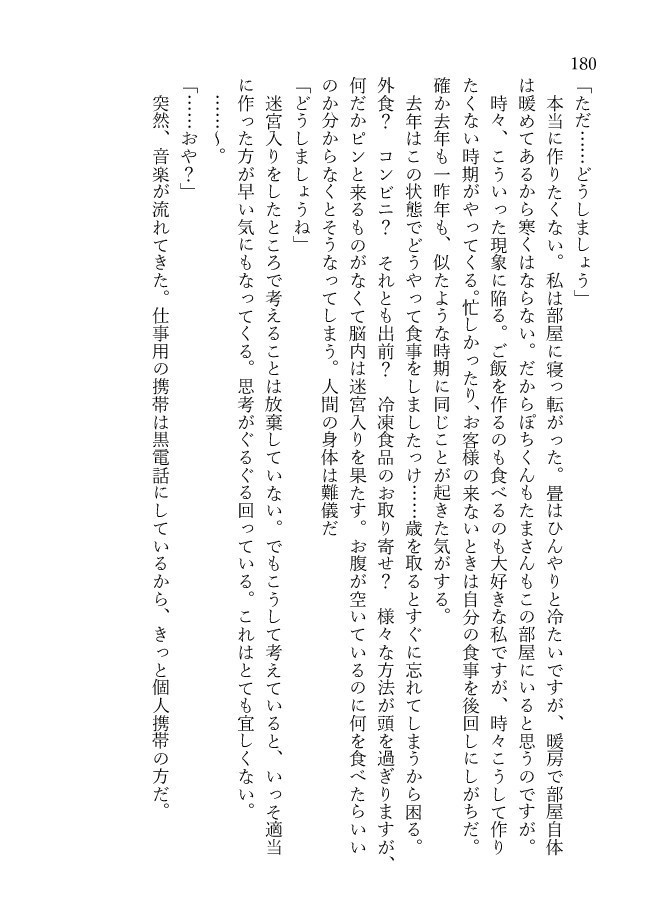 180
「ただ……どうしましょう」
　本当に作りたくない。私は部屋に寝っ転がった。畳はひんやりと冷たいですが、暖房で部屋自体
は暖めてあるから寒くはならない。だからぽちくんもたまさんもこの部屋にいると思うのですが。
　時々、こういった現象に陥る。ご飯を作るのも食べるのも大好きな私ですが、時々こうして作り
たくない時期がやってくる。忙しかったり、お客様の来ないときは自分の食事を後回しにしがちだ。
確か去年も一昨年も、似たような時期に同じことが起きた気がする。
　去年はこの状態でどうやって食事をしましたっけ……歳を取るとすぐに忘れてしまうから困る。
外食？　コンビニ？　それとも出前？　冷凍食品のお取り寄せ？　様々な方法が頭を過ぎりますが、
何だかピンと来るものがなくて脳内は迷宮入りを果たす。お腹が空いているのに何を食べたらいい
のか分からなくとそうなってしまう。人間の身体は難儀だ
「どうしましょうね」
　迷宮入りをしたところで考えることは放棄していない。でもこうして考えていると、いっそ適当
に作った方が早い気にもなってくる。思考がぐるぐる回っている。これはとても宜しくない。
　……〜。
「……おや？」
　突然、音楽が流れてきた。仕事用の携帯は黒電話にしているから、きっと個人携帯の方だ。